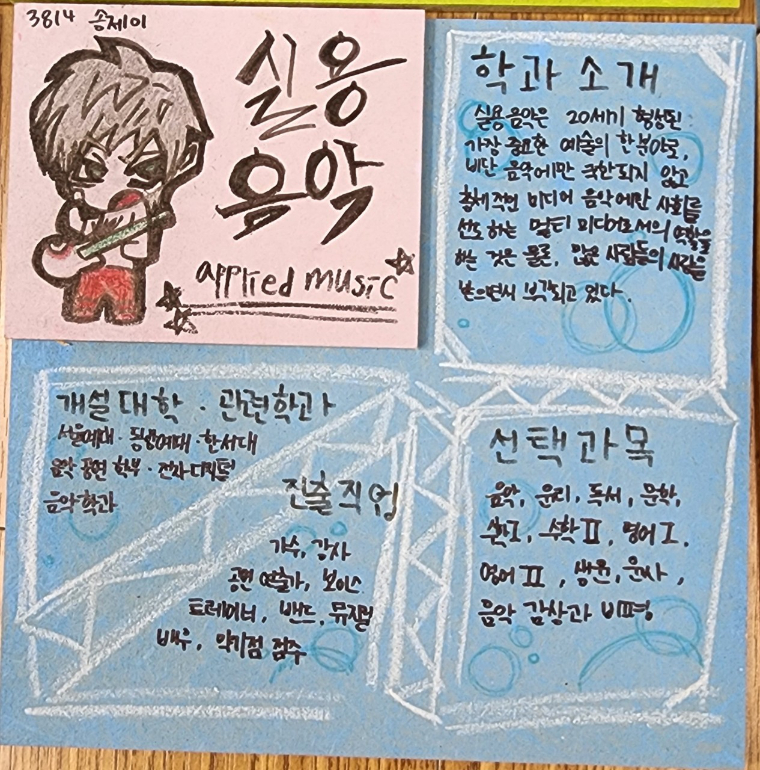 3814 송제이
실용
음악
applied music
학과 소개
실용음악은 20세기 형성된
가장 중요한 예술의 한 분야로,
비단 음악에만 국한되지 않고
총체적인 미디어 음악에만 사회를
선도하는 멀티미디어로서의 역할을
하는 것은 물론, 많은 사람들의 사랑을
받으면서 부각되고 있다.
개설대학 · 관련학과
서울예대 · 동아예대 · 한서대
음악 공연 학부 · 전자 디지털
음악학과
진출직업
가수, 강사
공연 연출가, 보이스
트레이너, 밴드, 뮤지컬
배우, 악기점 점주
선택과목
음악, 윤리, 독서, 문학,
수학I, 수학II, 영어I,
영어II, 생윤, 윤사,
음악 감상과 비평